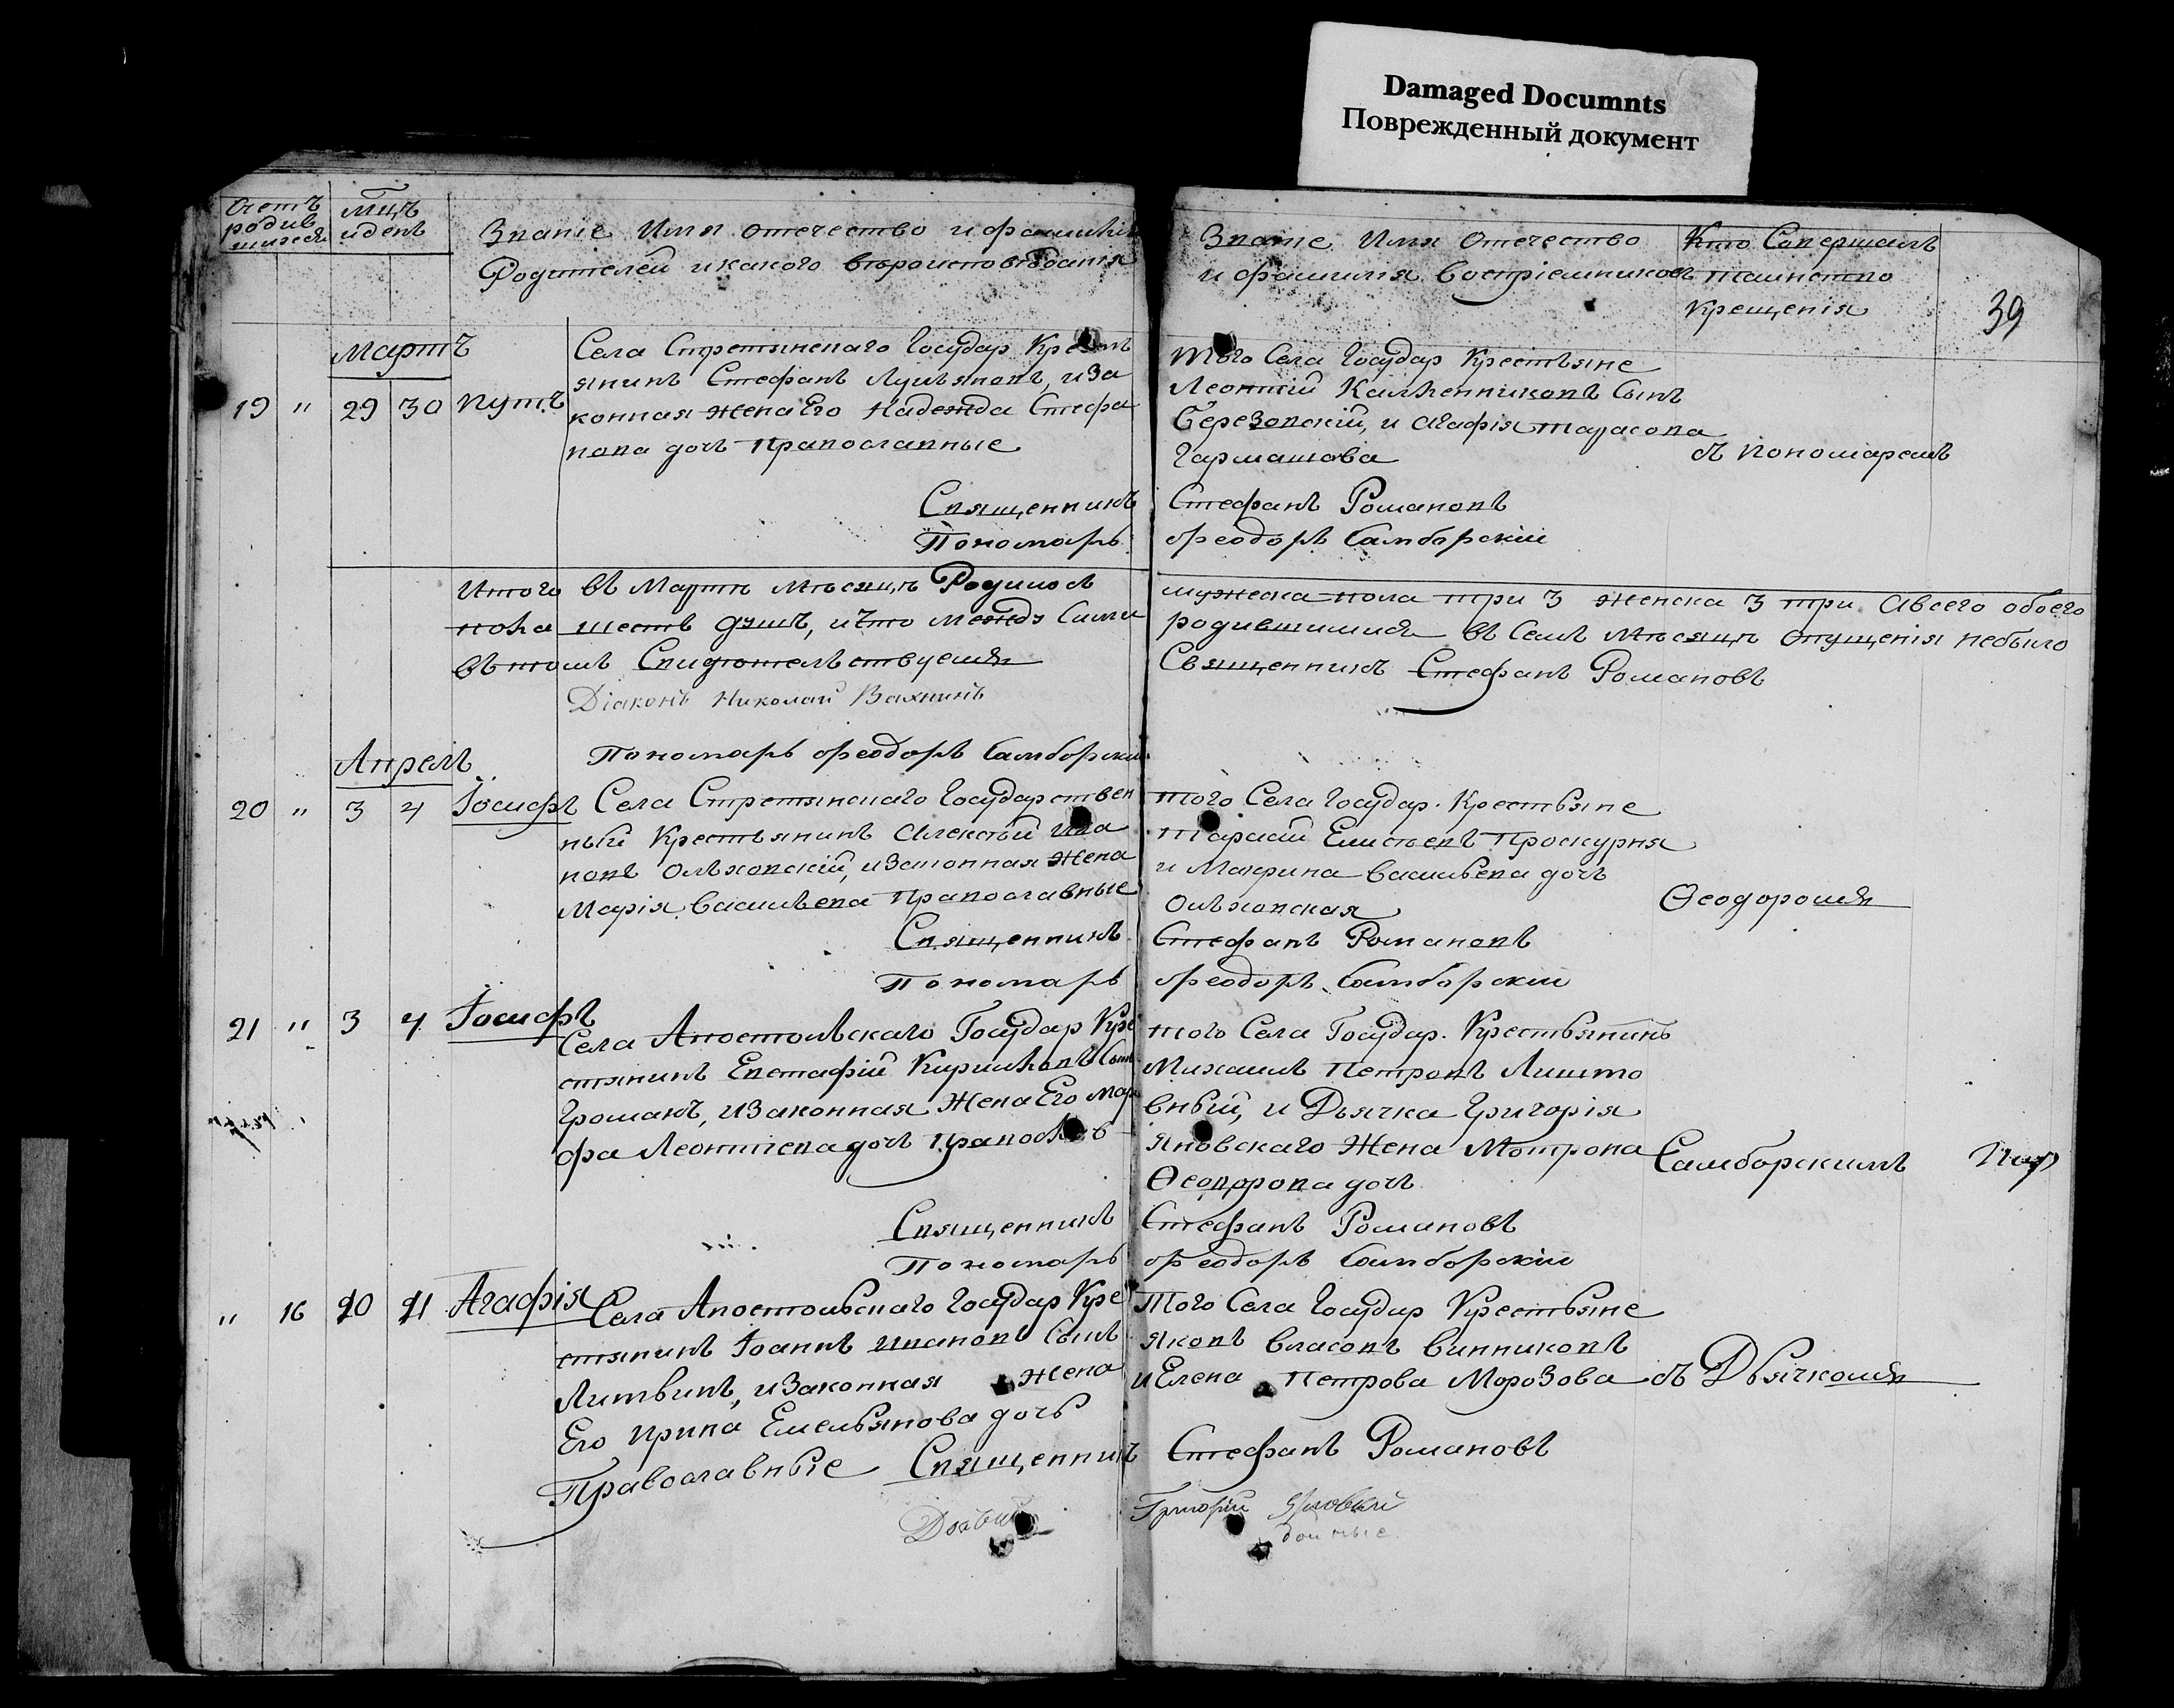 Damaged Documnts
Поврежденный документ
Счетъ родив шихся
Мцъ и день
Званіе Имя отечество и фамилія
Родителей и какого вѣроисповѣданія
Званіе Имя Отечество
и фамилія Воспріемниковъ
Кто Савершалъ
таинство
крещенія
39
Мартъ
19 " 29 30
Села Стретинскаго Государ Кресть
янинъ Стефанъ Лукьяновъ, и за
конная жена Его Надежда Стефа
нова дочь православные
того Села Государ Крестьяне
Леонтій Калленниковъ Сынъ
Березовскій, и Агафія Тарасова
Гармашова
съ Пономаремъ
Священникъ Стефанъ Романовъ
Пономарь Ѳеодоръ Самборскій
Итого въ Мартѣ Мѣсяцѣ Родилось мужеска пола три 3 женска 3 три. А всего обоего
пола шесть душъ, и что между Сими родившимися въ Семъ Мѣсяцѣ опущенія небыло
въ томъ Свидѣтельствуемъ Священникъ Стефанъ Романовъ
Діаконъ Николай Вахнинъ
Пономарь Ѳеодоръ Самборскій
Апрель
20 " 3 4 Іосифъ
Села Стретинскаго Государствен
ный Крестьянинъ Алексѣй Ива
новъ Ольховскій, и Законная Жена
Марія Васильева Православные
того Села Государ. Крестьяне
Тарасій Проскурня
и Макрина Васильева дочь
Ольховская
Ѳеодоромъ
Священникъ Стефанъ Романовъ
Пономарь Ѳеодоръ Самборскій
21 " 3 4 Іосифъ
Села Апостольскаго Государ Кре
стянинъ Евстафій Кирилловъ Сынъ
Громакъ, и Законная Жена Его Мар
фа Леонтіева дочь православ
того Села Государ. Крестьянинъ
Михаилъ Петровъ Лишто
вный, и Дьячка Григорія
Яновскаго Жена Мотрона
Ѳеодорова дочь
Самборскимъ
Священникъ Стефанъ Романовъ
Пономарь Ѳеодоръ Самборскій
" 16 20 21 Агафія
Села Апостольскаго Государ Кре
стянинъ Іоаннъ Ивановъ Сынъ
Литвинъ, и Законная Жена
Его Ирина Емельянова дочь
Православные
Того Села Государ Крестьяне
Яковъ Власовъ Винниковъ
и Елена Петрова Морозова
съ Дьячкомъ
Священникъ Стефанъ Романовъ
Григорій Яновскій